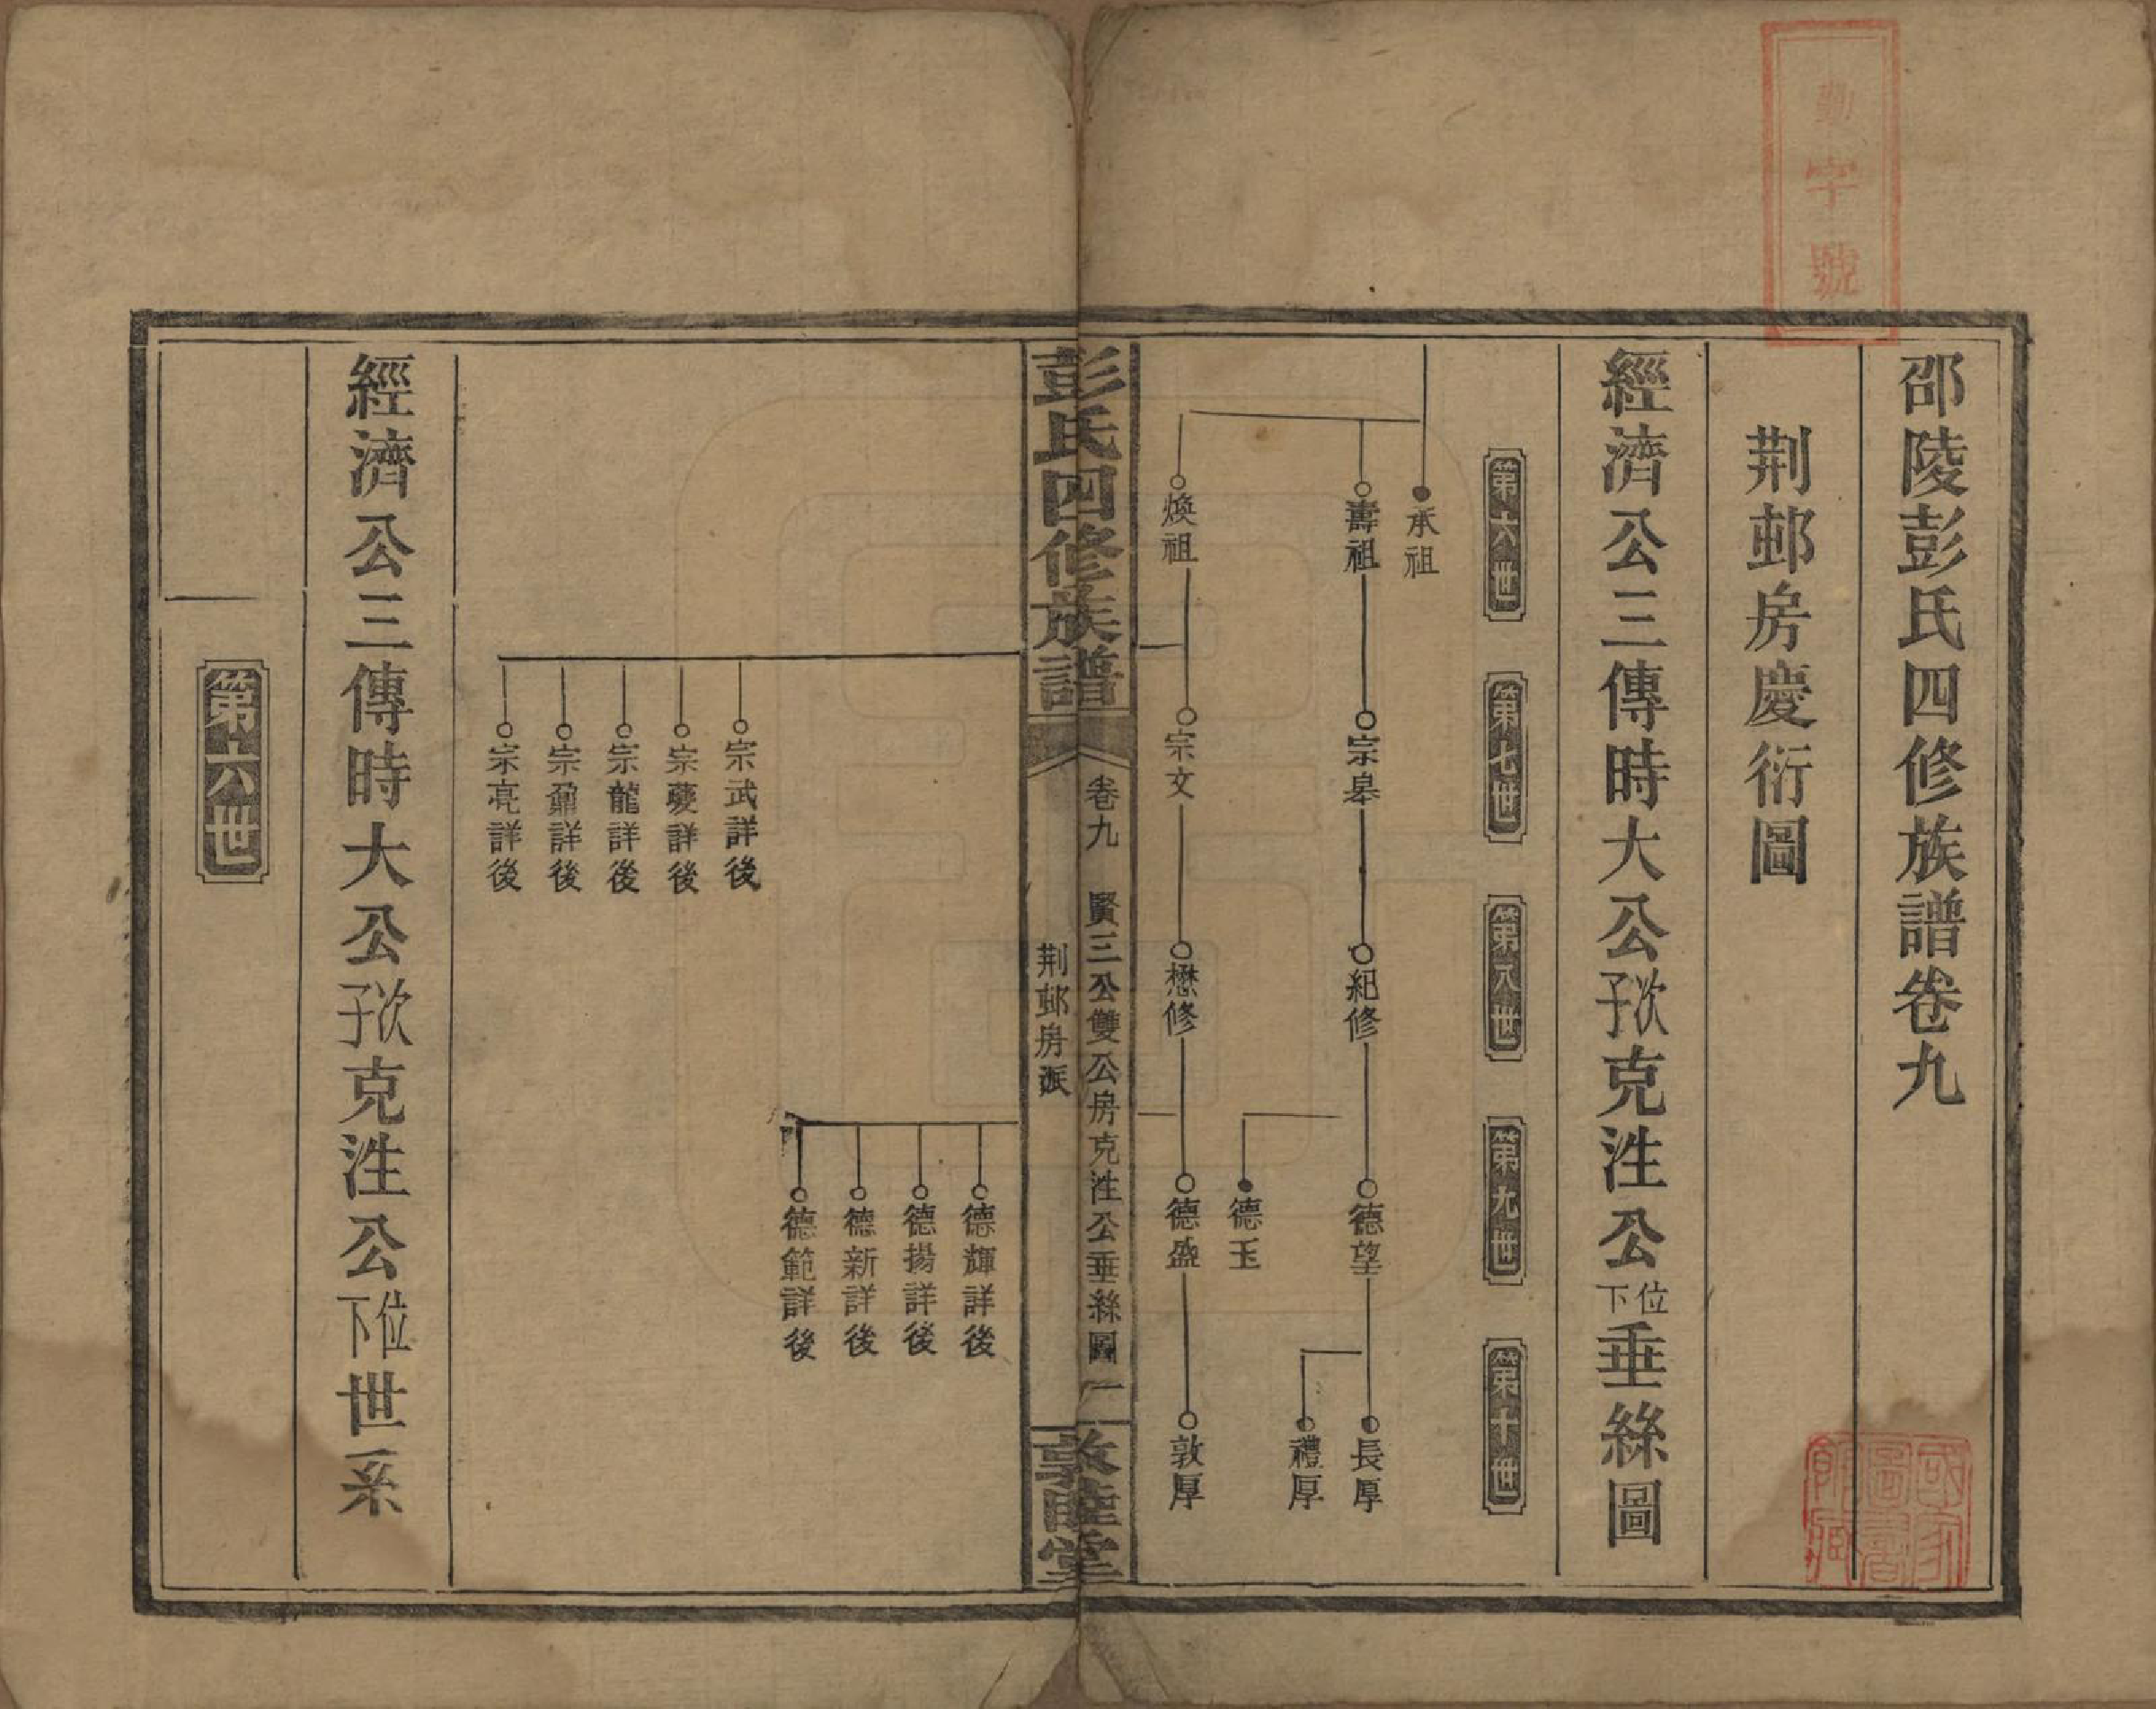 字號
邵陵彭氏四修族譜卷九
荆邨房慶衍圖
經濟公三傳時大公次子克泩公位下垂絲圖
第六世
第七世
第八世
第九世
第十世
承祖
壽祖
宗皋
紀修
德望
長厚
禮厚
德玉
煥祖
宗文
懋修
德盛
敦厚
彭氏四修族譜
卷九
賢三公雙公房克泩公垂絲圖
一
荆邨房派
敦睦堂
德輝詳後
德揚詳後
德新詳後
德範詳後
宗武詳後
宗夔詳後
宗龍詳後
宗鼐詳後
宗亮詳後
經濟公三傳時大公次子克泩公位下世系
第六世
國家圖書館藏